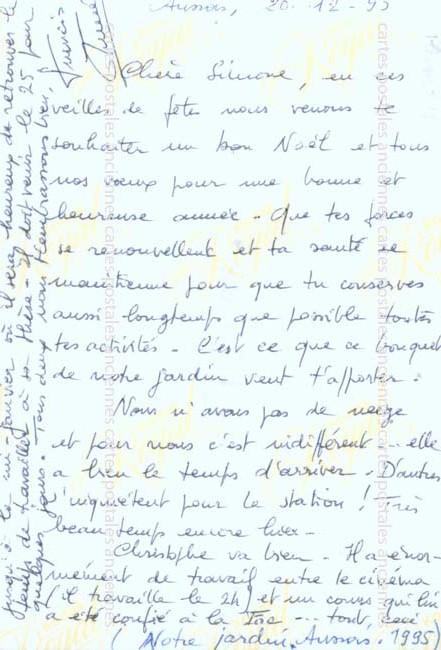 Aussois, 20-12-95
Chère Simone, en ces
veilles de fêtes nous venons te
souhaiter un bon Noël et tous
nos vœux pour une bonne et
heureuse année - Que tes forces
se renouvellent et ta santé se
maintienne pour que tu conserves
aussi longtemps que possible toutes
tes activités - C'est ce que ce bouquet
de notre jardin veut t'apporter.
Nous n'avons pas de neige
et pour nous c'est indifférent - elle
a bien le temps d'arriver. D'autres
s'inquiètent pour la station ! Très
beau temps encore hier -
Christophe va bien - Il a énor-
mément de travail entre le cinéma
(il travaille le 24) et un cours qui lui
a été confié à la Fac --- tout ceci
(Notre jardin. Aussois. 1995)
jusqu'à la mi-janvier où il sera heureux de retrouver le
temps de travailler à sa thèse - Il doit venir le 25 pour
quelques jours. Tous deux nous t'embrassons bien,
cartes postales anciennes